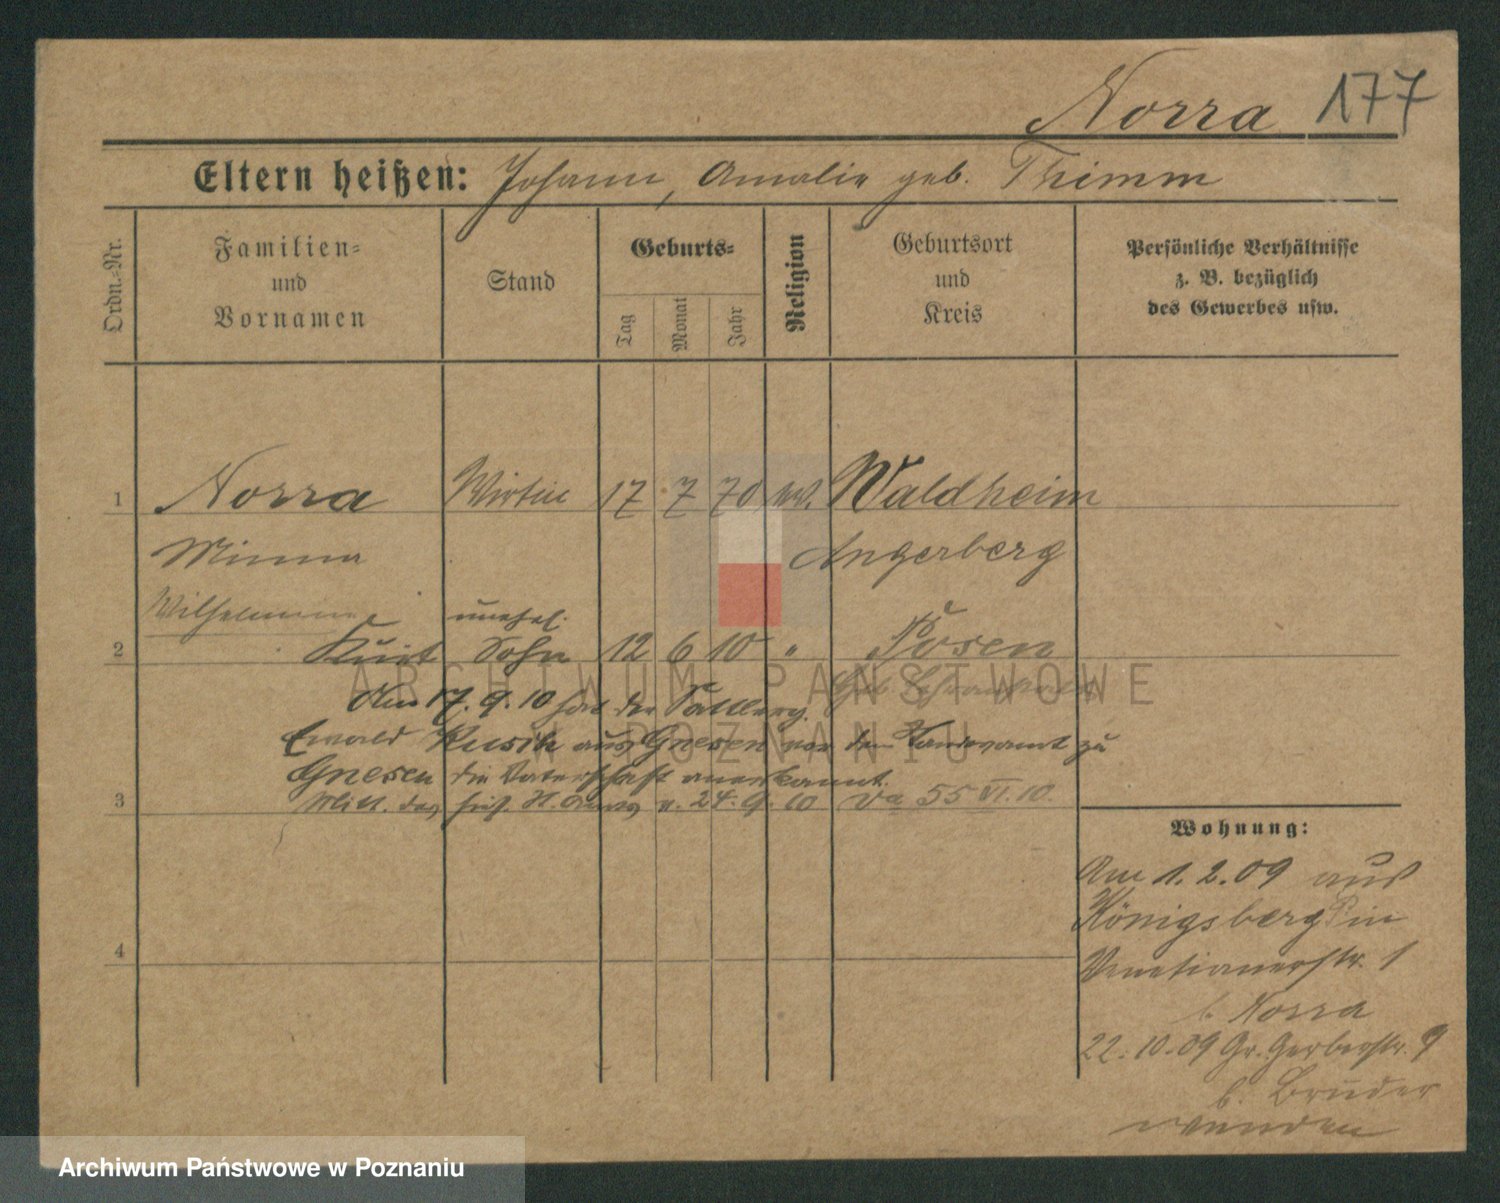 Norra 177
Eltern heißen: Johann, Amalie geb. Thimm
Ordn.-Nr.
Familien-
und
Vornamen
Stand
Geburts-
Tag
Monat
Jahr
Religion
Geburtsort
und
Kreis
Persönliche Verhältnisse
z. B. bezüglich
des Gewerbes usw.
1 Norra Wirtin 17 7 70 ev. Waldheim
Minna Angerberg
Wilhelmine unehel.
2 Kurt Sohn 12 6 10 " Posen
Am 17.9.10 hat der
Ewald Kusch aus Gnesen vor dem Standesamt zu
Gnesen die Vaterschaft anerkannt.
3 Mitt. des v. 24.9.10 55 VI.10
4
Wohnung:
Am 1.2.09 aus
Königsberg in
Venetianerstr. 1
b. Norra
22.10.09 Gr. Gerberstr. 9
b. Bruder
ARCHIWUM PAŃSTWOWE
W POZNANIU
Archiwum Państwowe w Poznaniu